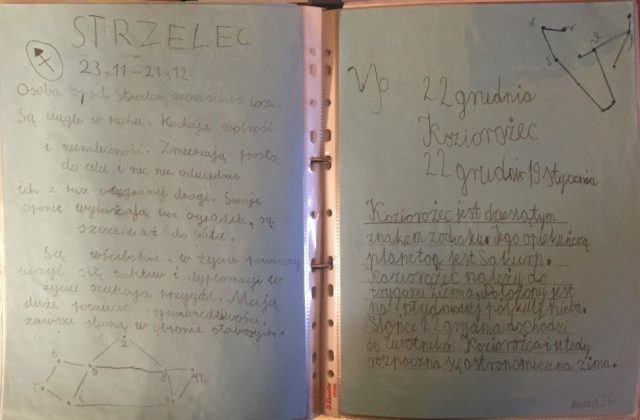 STRZELEC
23.11 - 21.12
Osoba spod Strzelca
Są ciągle w ruchu. Kochają wolność
i niezależność. Zmierzają prosto
do celu i nic nie odwiedzie
ich z raz obranej drogi. Swoje
opinie wyrażają bez ogródek, są
szczerzy do bólu.
Są wścibskie. w życiu powinny
uczyć się taktu i dyplomacji w
życiu szukają przygód. Mają
duże poczucie sprawiedliwości,
zawsze staną w obronie słabszych.
22 grudnia
Koziorożec
22 grudnia 19 stycznia
Koziorożec jest dziesiątym
znakem zodiaku. Jego opiekuńczą
planetą jest Saturn.
Koziorożec należy do
trygonu ziemia, położony jest
na południowej półkuli nieba.
Słońce 22 grudnia dochodzi
do zwrotnika Koziorożca i wtedy
rozpoczna się astronomiczna zima.